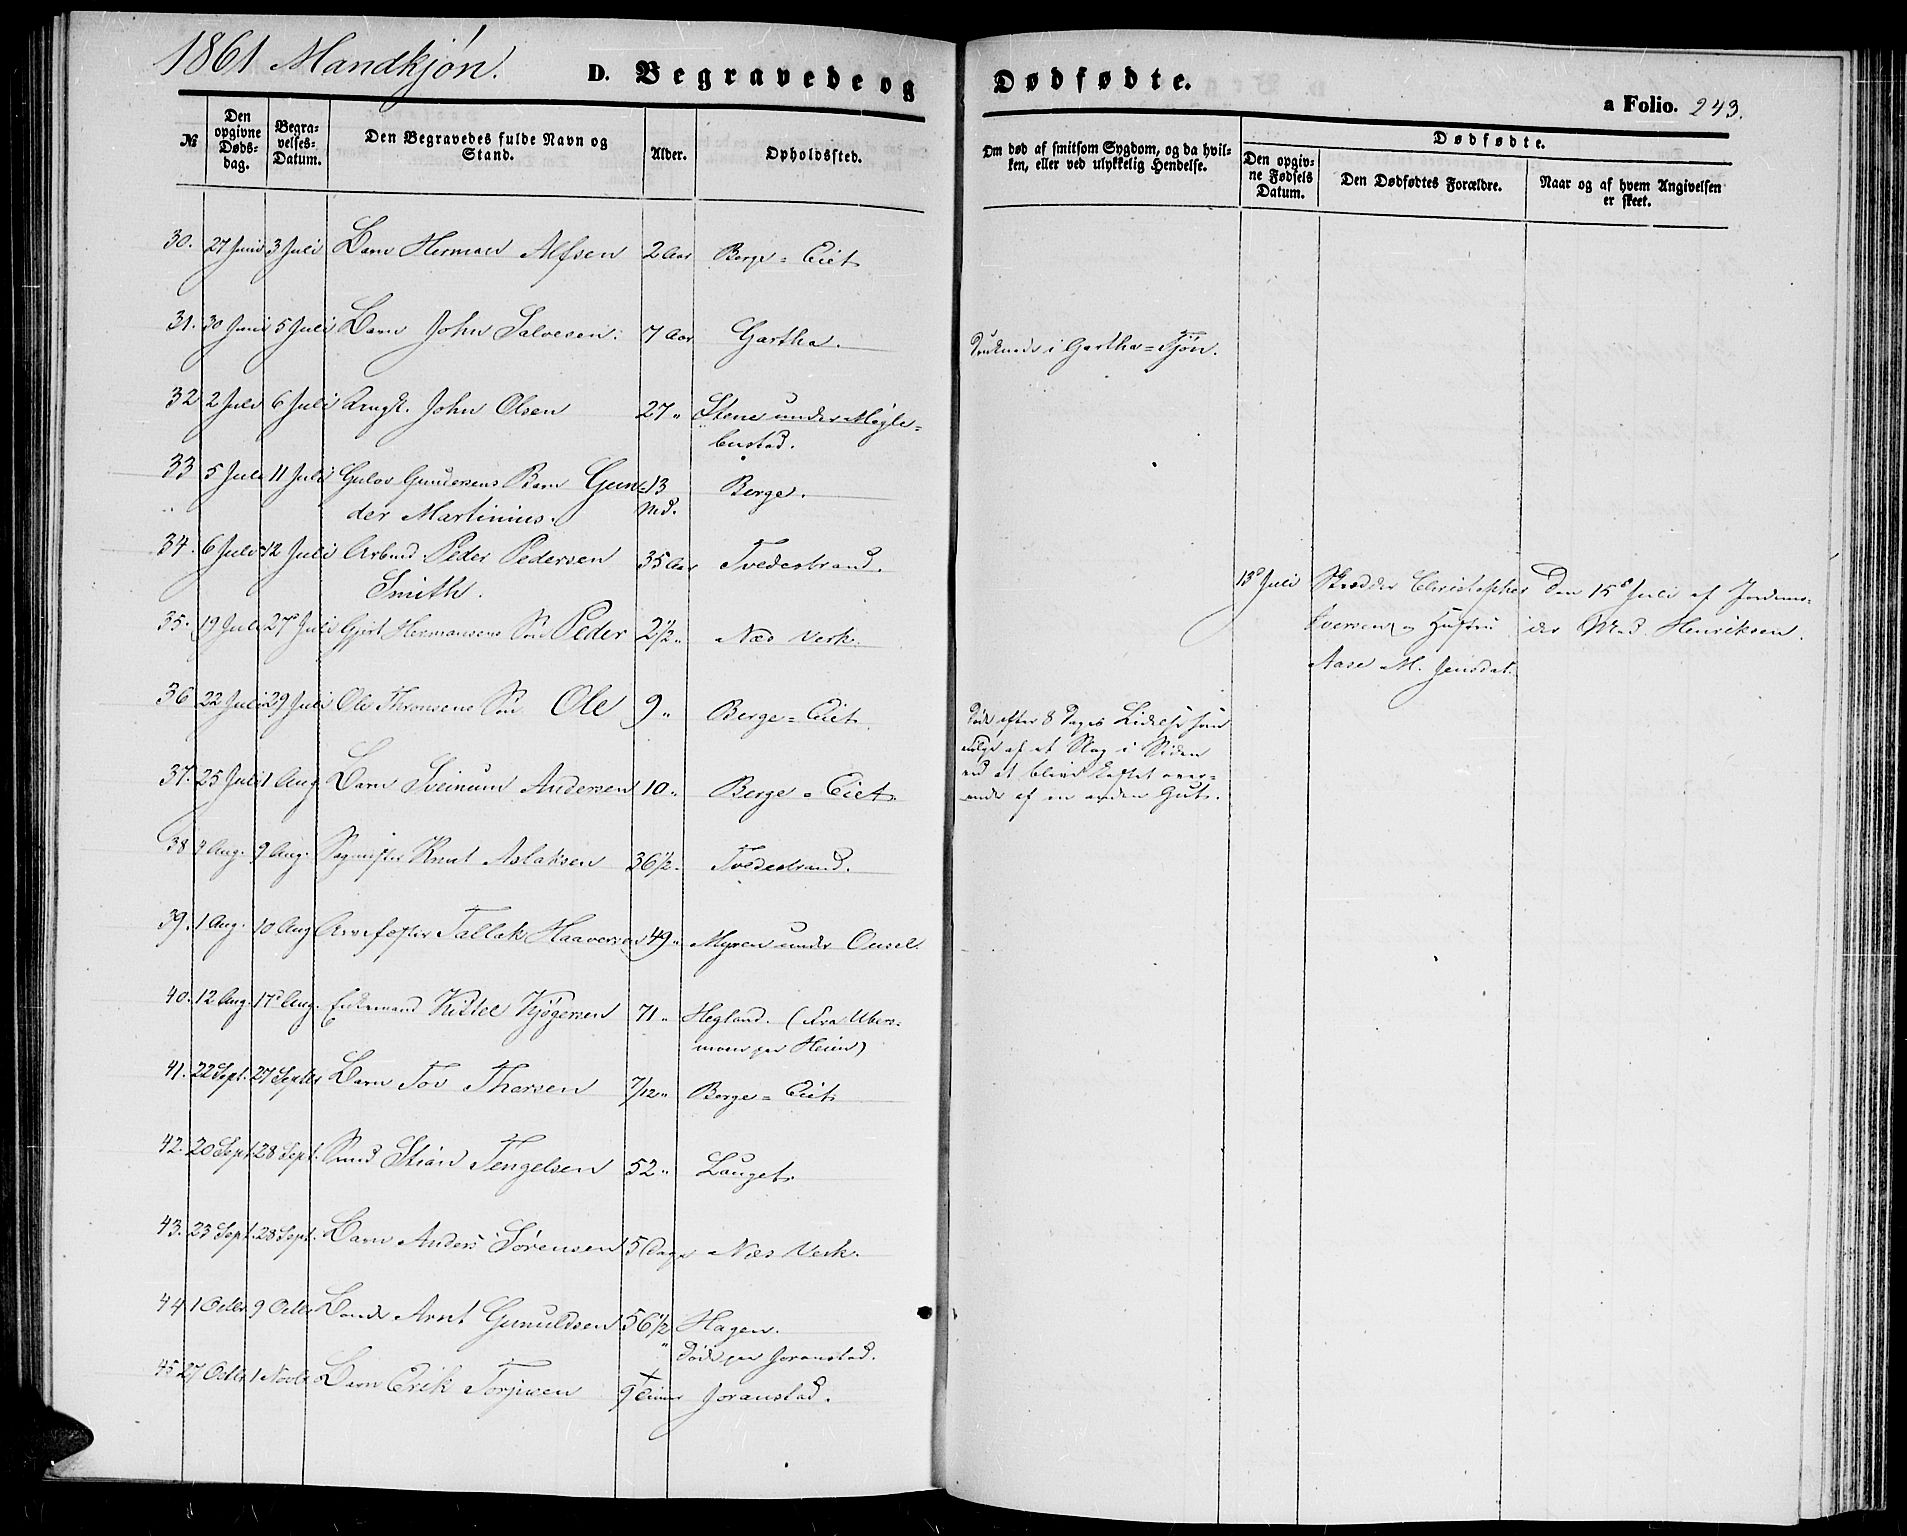 1861 Mandkjøn.
D. Begravede og Dødfødte.
a Folio. 243.
№
Den opgivne Døds-dag.
Begra-velses-Datum.
Den Begravedes fulde Navn og Stand.
Alder.
Opholdssted.
Om død af smitsom Sygdom, og da hvil-ken, eller ved ulykkelig Hendelse.
Dødfødte.
Den opgiv-ne Fødsels Datum.
Den Dødfødtes Forældre.
Naar og af hvem Angivelsen er skeet.
30. 27 Juni 3 Juli Barn Herman Alfsen 2 Aar Berge=Eiet
31. 30 Juni 5 Juli Barn John Salvesen. 7 Aar Gartha. Druknede i Gartha=Tjøn.
32 2 Juli 6 Juli Ungk. John Olsen 27 " Stene under Møgle=
bustad.
33 5 Juli 11 Juli Gulov Gundersens Barn Gun= 13 Berge.
der Martinius. Md.
34. 6 Juli 12 Juli Arbmd Peder Pedersen 35 Aar Tvedestrand.
Smith.
13d Juli Skrædder Christopher Den 15d Juli af Jordemo-
Iversen og Hustru der Md. Henriksen.
Aase M. Jensdat.
35. 19 Juli 27d Juli Gjert Hermansens Søn Peder 2 1/2 " Næs Verk.
36 22 Juli 29 Juli Ole Thronsens Søn Ole 9 " Berge=Eiet. Døde efter 8 Dages Lidelse som
Følge af et Slag i Siden
ved at blive kastet over-
ende af en anden Gut.
37. 25 Juli 1 Aug. Barn Sveinum Andersen 10 " Berge=Eiet.
38 3 Aug. 9 Aug. Sagmester Knut Aslaksen 36 1/2 " Tvedestrand.
39. 1 Aug. 10 Aug Arvefæster Tallak Haaversen 49 " Myren under Ousel.
40. 12 Aug. 17d Aug. Enkemand Kittel Kjøgersen 71 " Hegland. (Fra Uber-
moen paa Heien)
41. 22 Sept. 27 Septbr Barn Tov Thorsen 7/12 " Berge=Eiet
42. 20 Sept. 28 Sept. Smd Stian Tengelsen 52 " Lauget.
43. 23 Sept. 28 Sept. Barn Anders Sørensen 5 Dage Næs Verk.
44 1 Octbr 9 Octbr Bonde Arnt Gunuldsen 56 1/2 " Hagen.
Døde paa Joranstad.
45 27 Octbr 1 Novbr Barn Erik Torjusen 9 Timer Joranstad.